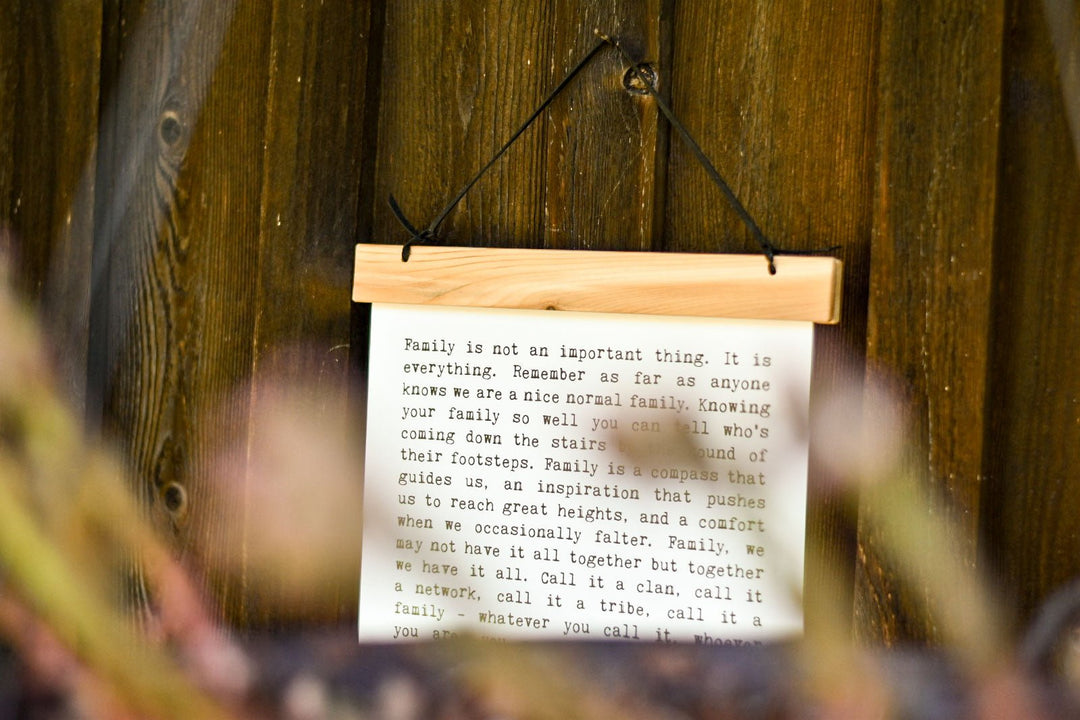 Family is not an important thing. It is
everything. Remember as far as anyone
knows we are a nice normal family. Knowing
your family so well you can tell who's
coming down the stairs by the sound of
their footsteps. Family is a compass that
guides us, an inspiration that pushes
us to reach great heights, and a comfort
when we occasionally falter. Family, we
may not have it all together but together
we have it all. Call it a clan, call it
a network, call it a tribe, call it a
family - whatever you call it, whoever
you are, you